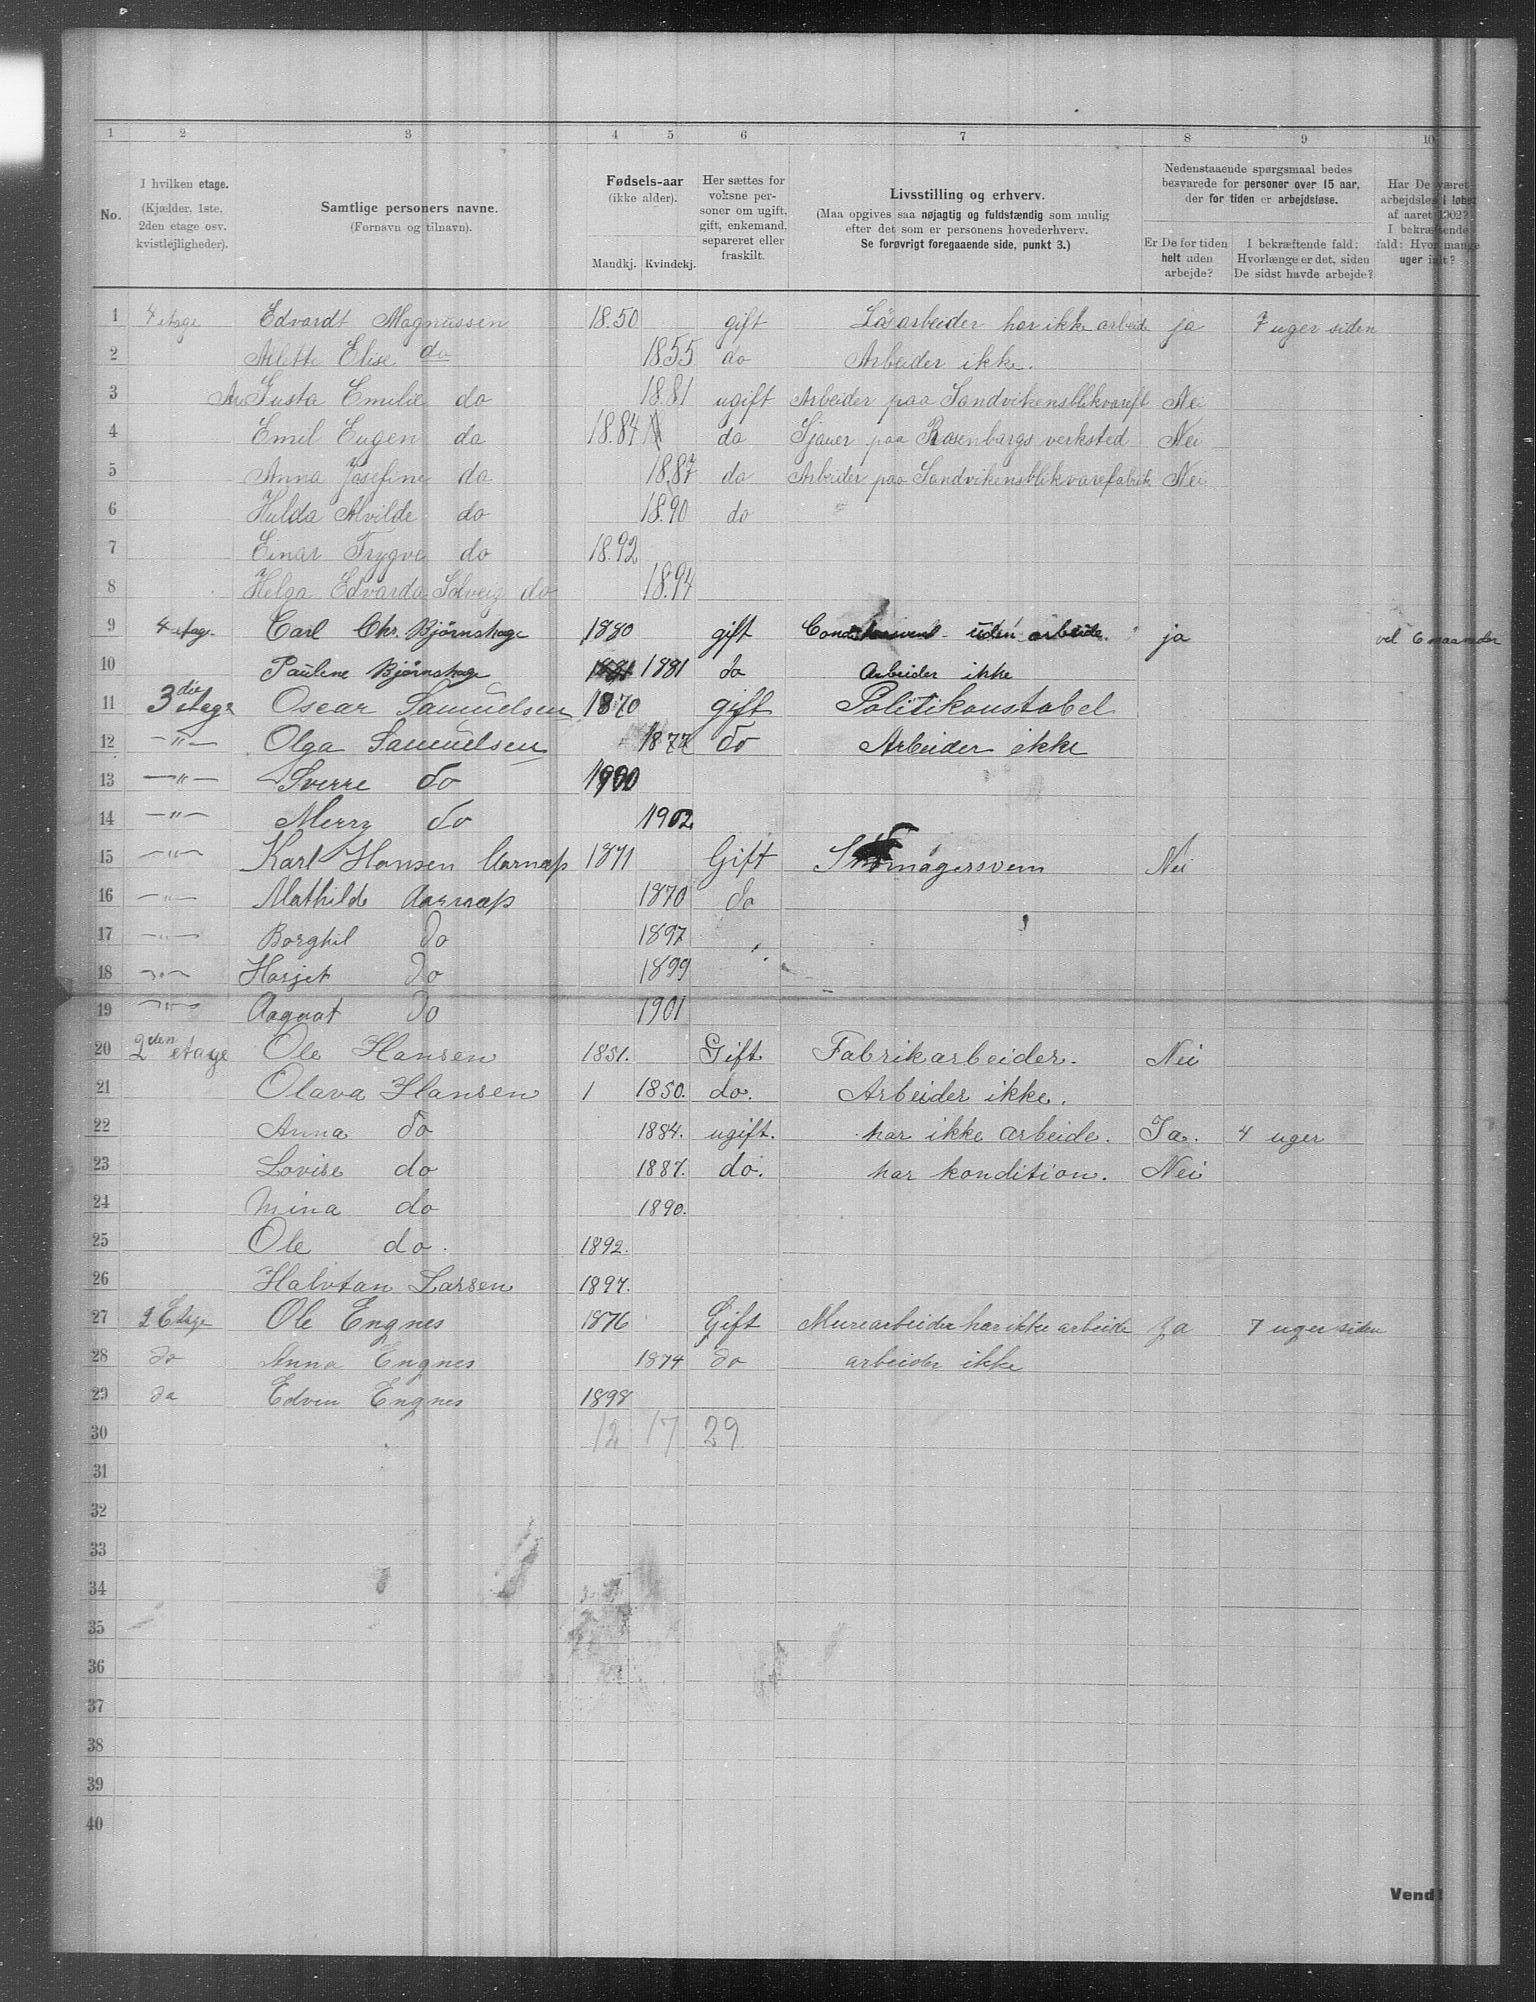 1 2 3 4 5 6 7 8 9 10
No.
I hvilken etage.
(Kjælder, 1ste.
2den etage osv.
kvistlejligheder).
Samtlige personers navne.
(Fornavn og tilnavn).
Fødsels-aar
(ikke alder).
Mandkj. Kvindekj.
Her sættes for
voksne per-
soner om ugift,
gift, enkemand,
separeret eller
fraskilt.
Livsstilling og erhverv.
(Maa opgives saa nøjagtig og fuldstændig som mulig
efter det som er personens hovederhverv.
Se forøvrigt foregaaende side, punkt 3.)
Nedenstaaende spørgsmaal bedes
besvarede for personer over 15 aar,
der for tiden er arbejdsløse.
Er De for tiden
helt uden
arbejde?
I bekræftende fald:
Hvorlænge er det, siden
De sidst havde arbejde?
Har De været
arbejdsløs i løbet
af aaret 1902?
I bekræftende
fald: Hvor mange
uger ialt?
1 4 etage Edvardt Magnussen 1850 gift Lösarbeider har ikke arbeide ja 7 uger siden
2 Alette Elise do 1855 do Arbeider ikke.
3 Gusta Emilie do 1881 ugift Arbeider paa Sandvikensblikvareft Nei
4 Emil Eugen do 1884 do Sjauer paa Rosenbargs verksted Nei
5 Anna Josefine do 1887 do Arbeider paa Sandvikensblikvarefabrik Nei
6 Hulda Alvilde do 1890 do
7 Einar Trygve do 1892
8 Helga Edvarda Solveig do 1894
9 4 etag. Carl Chr. Bjørnshage 1880 gift uden arbeide. ja vel 6 maaneder
10 Paulene Bjørnshage 1881 1881 do Arbeider ikke
11 3die etage Oscar Samuelsen 1870 gift Politikonstabel
12 —"— Olga Samuelsen 1877 do Arbeider ikke
13 —"— Sverre do 1900
14 —"— Merry do 1902
15 —"— Karl Hansen Aarnæs 1871 Gift Skomagersvem Nei
16 —"— Mathilde Aarnæs 1870 do
17 —"— Borghil do 1897
18 —"— Harjet do 1899
19 —"— Aagnat do 1901
20 2den etage Ole Hansen 1851. Gift Fabrikarbeider. Nei
21 Olava Hansen 1 1850. do. Arbeider ikke.
22 Anna do 1884. ugift. har ikke arbeide. Ja. 4 uger
23 Lovise do 1887. do. har kondition. Nei
24 Mina do 1890.
25 Ole do. 1892.
26 Halvtan Larsen 1897.
27 2 Etage Ole Engnes 1876 Gift Murearbeider har ikke arbeide ja 7 uger siden
28 do Anna Engnes 1874 do arbeider ikke
29 do Edven Engnes 1898
30 12 17 29
31
32
33
34
35
36
37
38
39
40
Vend!